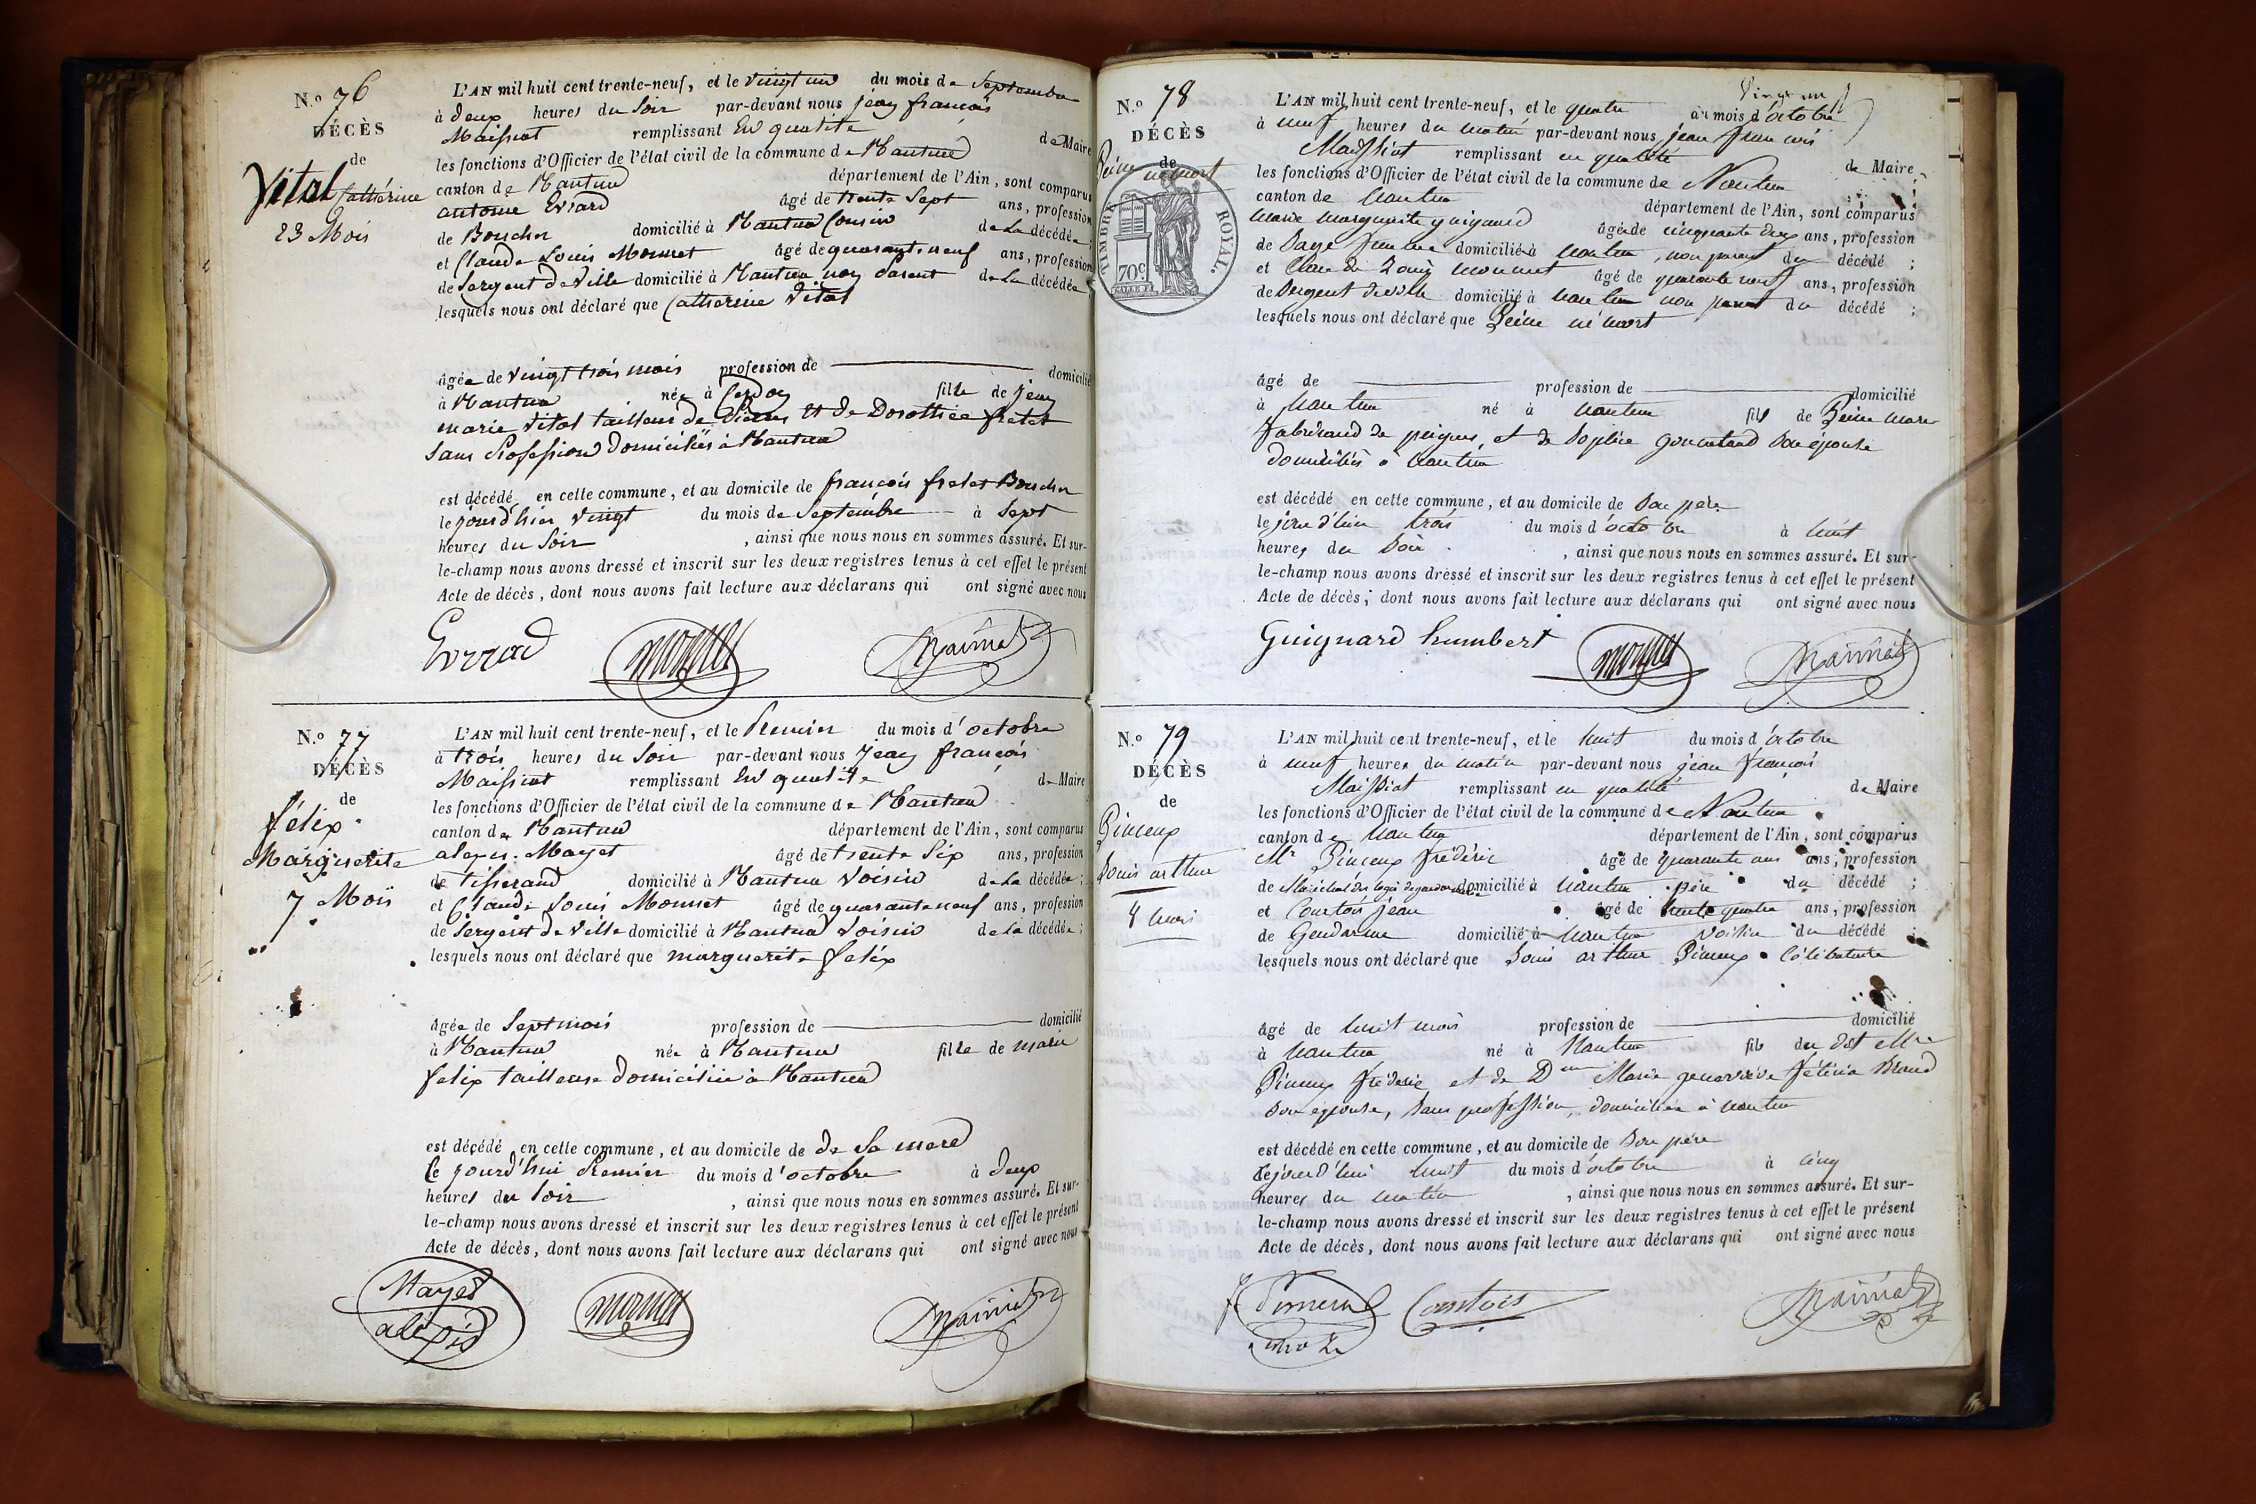 N.o 76
DÉCÈS
de
Vital Catherine
23 Mois
L'AN mil huit cent trente-neuf, et le vingt un du mois de Septembre
à deux heures du Soir par-devant nous jean françois
Maissiat remplissant En qualité de Maire
les fonctions d'Officier de l'état civil de la commune de Nantua
canton de Nantua département de l'Ain, sont comparus
antoine Evrard âgé de trente Sept ans, profession
de Boucher domicilié à Nantua Cousin de La décédée
et Claude Louis Monnet âgé de quarante neuf ans, profession
de Sergent de Ville domicilié à Nantua non parent de La décédée
lesquels nous ont déclaré que Catherine Vital
âgée de vingt trois mois profession de domicilié
à Nantua née à Cerdon fille de jean
marie Vital tailleur de Pierres et de Dorothée fretet
Sans Profession domiciliés à Nantua
est décédé en cette commune, et au domicile de françois fretet Boucher
le jourd'hier vingt du mois de Septembre à Sept
heures du Soir, ainsi que nous nous en sommes assuré. Et sur-
le-champ nous avons dressé et inscrit sur les deux registres tenus à cet effet le présent
Acte de décès, dont nous avons fait lecture aux déclarans qui ont signé avec nous
Evrard monnet Maissiat
N.o 77
DÉCÈS
de
félix
Marguerite
7 Mois
L'AN mil huit cent trente-neuf, et le Premier du mois d'octobre
à trois heures du Soir par-devant nous jean françois
Maissiat remplissant En qualité de Maire
les fonctions d'Officier de l'état civil de la commune de Nantua
canton de Nantua département de l'Ain, sont comparus
alexis Mayet âgé de trente Six ans, profession
de Tisserand domicilié à Nantua Voisin de La décédée;
et Claude Louis Monnet âgé de quarante neuf ans, profession
de Sergent de Ville domicilié à Nantua Voisin de La décédée;
lesquels nous ont déclaré que marguerite felix
âgée de Sept mois profession de domicilié
à Nantua née à Nantua fille de marie
felix tailleuse domiciliée à Nantua
est décédé en cette commune, et au domicile de de Sa mere
Ce jourd'hui Premier du mois d'octobre à deux
heures du Soir, ainsi que nous nous en sommes assuré. Et sur-
le-champ nous avons dressé et inscrit sur les deux registres tenus à cet effet le présent
Acte de décès, dont nous avons fait lecture aux déclarans qui ont signé avec nous
Mayet
alexis monnet Maissiat
N.o 78
DÉCÈS
de
né mort
TIMBRE ROYAL.
70c
L'AN mil huit cent trente-neuf, et le quatre du mois d'octobre
à neuf heures du matin par-devant nous jean françois
Maissiat remplissant en qualité de Maire
les fonctions d'Officier de l'état civil de la commune de Nantua
canton de Nantua département de l'Ain, sont comparus
marie marguerite guignard âgée de cinquante deux ans, profession
de Sage femme domicilié à Nantua, non parent du décédé;
et Claude Louis monnet âgé de quarante neuf ans, profession
de Sergent de ville domicilié à Nantua non parent du décédé;
lesquels nous ont déclaré que né mort
âgé de profession de domicilié
à Nantua né à Nantua fils de marc
fabricand de peignes, et de Sophie son épouse
domiciliés à Nantua
est décédé en cette commune, et au domicile de Son père
le jour d'hier trois du mois d'octobre à huit
heures du Soir, ainsi que nous nous en sommes assuré. Et sur-
le-champ nous avons dressé et inscrit sur les deux registres tenus à cet effet le présent
Acte de décès, dont nous avons fait lecture aux déclarans qui ont signé avec nous
Guignard humbert monnet Maissiat
N.o 79
DÉCÈS
de
Louis arthur
8 mois
L'AN mil huit cent trente-neuf, et le huit du mois d'octobre
à neuf heures du matin par-devant nous jean françois
Maissiat remplissant en qualité de Maire
les fonctions d'Officier de l'état civil de la commune de Nantua
canton de Nantua département de l'Ain, sont comparus
Mr frédéric âgé de quarante ans ans, profession
de Maréchal des logis de gendarmerie domicilié à Nantua père du décédé;
et Courtois jean âgé de trente quatre ans, profession
de Gendarme domicilié à Nantua voisin du décédé;
lesquels nous ont déclaré que Louis arthur Célibataire
âgé de huit mois profession de domicilié
à Nantua né à Nantua fils du dit Mr
frédéric et de Dme Marie geneviève félicia
son épouse, sans profession, domiciliée à Nantua
est décédé en cette commune, et au domicile de Son père
Cejourd'hui huit du mois d'octobre à cinq
heures du matin, ainsi que nous nous en sommes assuré. Et sur-
le-champ nous avons dressé et inscrit sur les deux registres tenus à cet effet le présent
Acte de décès, dont nous avons fait lecture aux déclarans qui ont signé avec nous
Courtois Maissiat